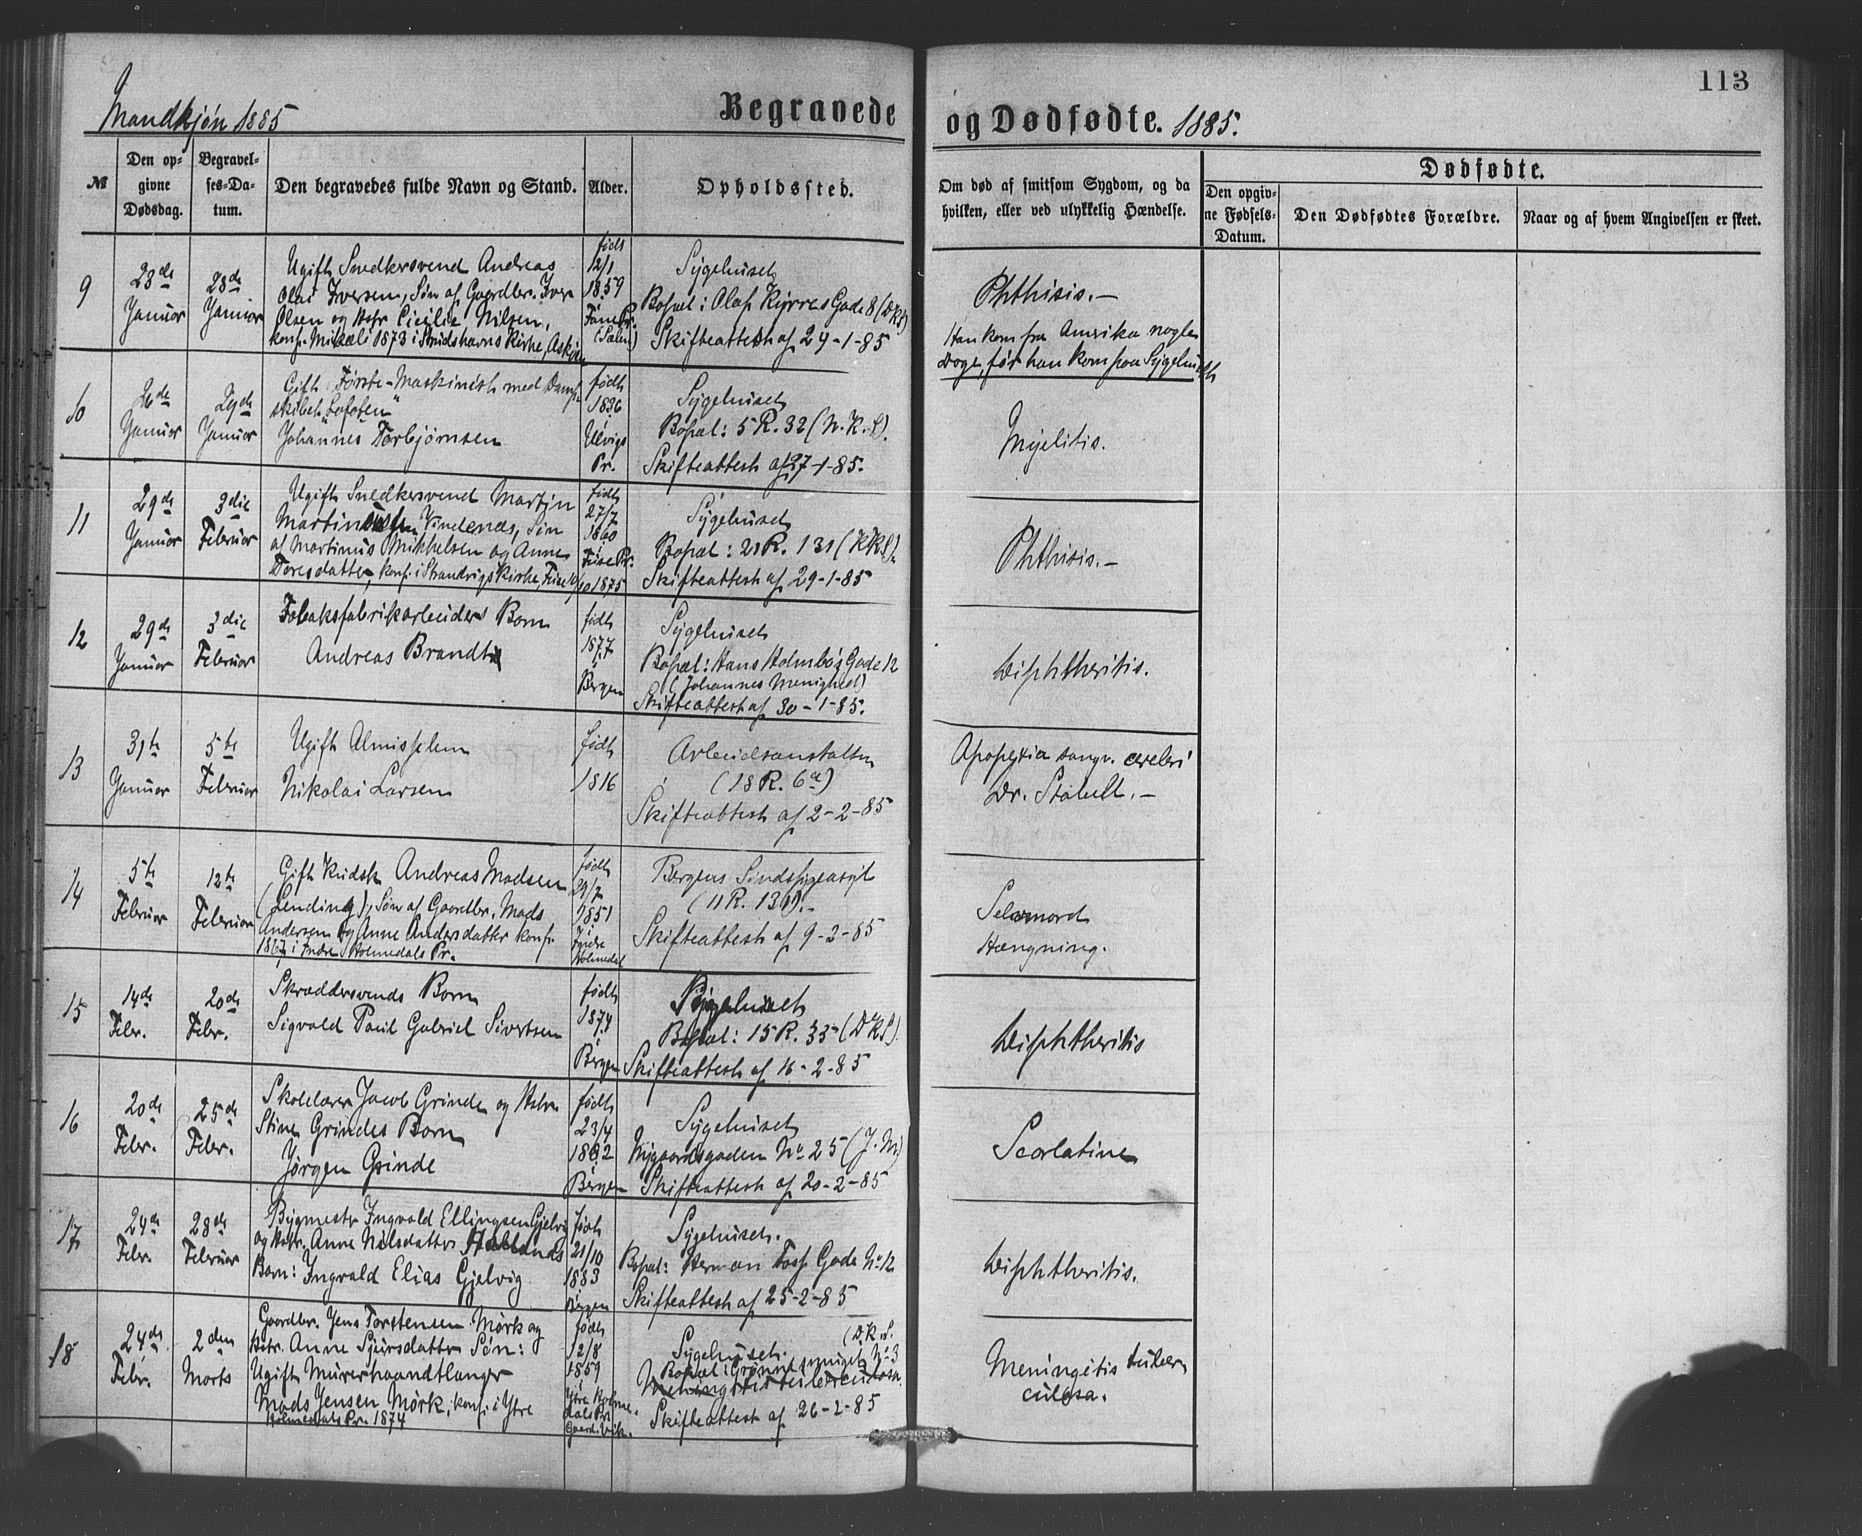 Mandkjøn 1885
Begravede
og Dødfødte. 1885.
113
№
Den op-
givne
Dødsdag.
Begravel-
ses-Da-
tum.
Den begravedes fulde Navn og Stand.
Alder.
Opholdssted.
Om død af smitsom Sygdom, og da
hvilken, eller ved ulykkelig Hændelse.
Dødfødte.
Den opgiv-
ne Fødsels-
Datum.
Den Dødfødtes Forældre.
Naar og af hvem Angivelsen er skeet.
9
23de
Januar
28de
Januar
Ugift Snedkersvend Andreas
Olai Iversen, Søn af Gaardbr. Iver
Olsen og Hstr Cicilie Nilsen,
konf. Mikaeli 1873 i Strudshavns Kirke, Askøen
født
12/1
1859
Fane Pr.
Sygehuset
Bopæl: Olaf Kyrres Gade 8 (DKS)
Skifteattest af 29-1-85
Phthisis.-
Han kom fra Amerika nogle
Dage, før han kom paa Sygehuset
10
26de
Januar
29de
Januar
Gift Første-Maskinist med Damp-
skibet "Lofoten"
Johannes Torbjørnsen
født
1836
i
Ulvigs
Pr.
Sygehuset
Bopæl: 5 R. 32 (N.K.S).
Skifteattest af 27-1-85.
Myelitis.
11
29de
Januar
3die
Februar
Ugift Snedkersvend Martin
Martinussen Vindenæs, Søn
af Martinus Mikkelsen og Anne
Toresdatter, konf. i Strandvigs Kirke, Fuse 10/10 1875
født
27/7
1860
i
Fuse Pr.
Sygehuset
Bopæl: 21 R. 131 (KKS).
Skifteattest af 29-1-85
Phthisis.-
12
29de
Januar
3die
Februar
Tobaksfabrikarbeiders Barn
Andreas Brandt
født
1877
i
Bergen
Sygehuset
Bopæl: Hans Holmboes Gade 12
(Johannes Menighed)
Skifteattest af 30-1-85.
Diphtheritis.
13
31te
Januar
5te
Februar
Ugift Almisselem
Nikolai Larsen
født
1816
Arbeidsanstalten
(18 R. 6a)
Skifteattest af 2-2-85
Apoplexia sangv. cerebri
Dr. Stabell.-
14
5te
Februar
12te
Februar
Gift Kudsk Andreas Madsen
(Lending), Søn af Gaardbr. Mads
Andersen og Anne Andersdatter konf.
1867 i Indre Holmedals Pr.
født
29/7
1851
i
Indre
Holmedal
Bergens Sindssygeasyl
(11 R. 131).-
Skifteattest af 9-2-85
Selvmord
Hængning.
15
14de
Febr.
20de
Febr.
Skræddersvends Barn
Sigvald Paul Gabriel Sivertsen
født
1874
i
Bergen
Sygehuset
Bopæl: 15 R. 35 (DKS).
Skifteattest af 16-2-85
Diphtheritis
16
20de
Febr.
25de
Febr.
Skolelærer Jacob Grinde og Hstr.
Stine Grindes Barn
Jørgen Grinde
født
23/4
1882
i
Bergen
Sygehuset
Nygaardsgaden No 25 (J.M)
Skifteattest af 20-2-85
Scarlatina
17
24de
Febr.
28de
Februar
Bygmestr Ingvald Ellingsen Gjelvig
og Hstr. Anne Nilsdatter Hallands
Barn: Ingvald Elias Gjelvig
født
21/10
1883
i Bergen
Sygehuset.
Bopæl: Herman Foss Gade No 12
Skifteattest af 25-2-85
Diphtheritis.
18
24de
Febr.
2den
Marts
Gaardbr. Jens Torstensen Mørk og
Hstr. Anne Sjursdatters Søn:
Ugift Murerhaandtlanger
Mads Jensen Mørk, konf. i Ytre
Holmedals Pr. 1874
født
12/8
1859
i
Ytre Holme-
dals Pr.
Gaard: Vik.
(D.K.S.
Sygehuset.
Bopæl: Grønnesmuget No 3
Meningitis tuberculosa.
Skifteattest af 26-2-85
Meningitis tuber-
culosa.